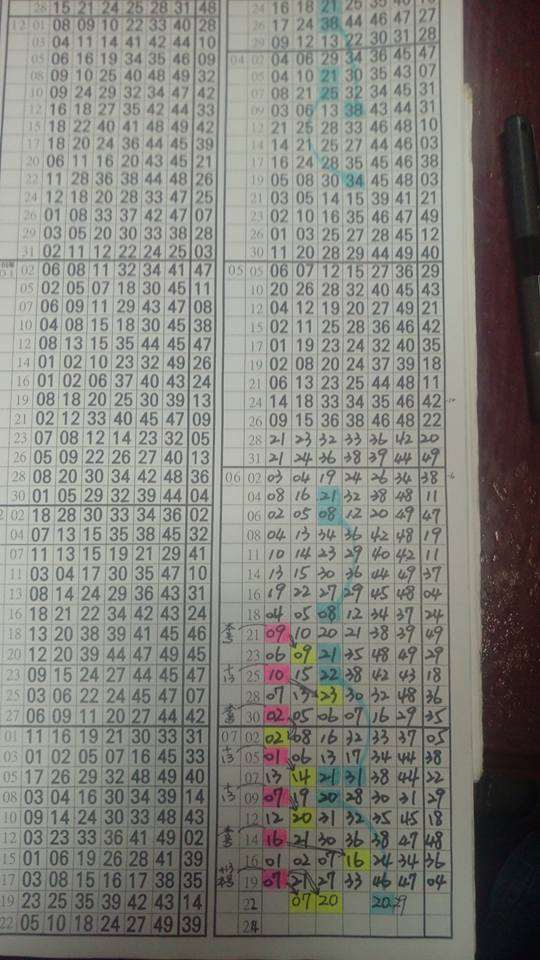 28 15 21 24 25 28 31 48
12 01 08 09 10 22 33 40 28
03 04 11 14 41 42 44 10
05 06 16 19 34 35 46 09
08 09 10 25 40 48 49 32
10 09 24 29 32 34 47 42
12 16 18 27 35 42 44 33
15 18 22 40 41 48 49 42
17 18 20 24 36 44 45 39
20 06 11 16 20 43 45 21
22 11 28 36 38 44 48 26
24 12 18 20 28 33 47 25
26 01 08 33 37 42 47 07
29 03 05 20 30 33 38 28
31 02 11 12 22 24 25 03
02 06 08 11 32 34 41 47
05 02 05 07 18 30 45 11
07 06 09 11 29 43 47 08
10 04 08 15 18 30 45 38
12 08 13 15 35 44 45 47
14 01 02 10 23 32 49 26
16 01 02 06 37 40 43 24
19 08 18 20 25 30 39 13
21 02 12 33 40 45 47 09
23 07 08 12 14 23 32 05
26 05 09 22 26 27 40 13
28 08 20 30 34 42 48 36
30 01 05 29 32 39 44 04
02 18 28 30 33 34 36 02
04 07 13 15 35 38 45 32
07 11 13 15 19 21 29 41
11 03 04 17 30 35 47 10
13 08 14 24 29 36 43 31
16 18 21 22 34 42 43 24
18 13 20 38 39 41 45 46
20 12 20 39 44 47 49 45
23 09 15 24 27 44 45 47
25 03 06 22 24 45 47 07
27 06 09 11 20 27 44 42
01 11 16 19 21 30 33 31
03 01 02 05 07 16 45 33
05 17 26 29 32 48 49 40
08 03 04 16 30 34 39 14
10 09 14 24 30 33 48 43
12 03 23 33 36 41 49 02
15 01 06 19 26 28 41 39
17 03 08 15 16 17 38 35
19 23 25 35 39 42 43 14
22 05 10 18 24 27 49 39
24 16 18 21 25 35 40 46
26 17 24 38 44 46 47 27
29 09 12 13 22 30 31 28
04 02 04 06 29 34 36 45 47
05 04 10 21 30 35 43 07
07 08 21 25 32 34 45 31
09 03 06 13 38 43 44 31
12 21 25 28 33 46 48 10
14 14 21 25 27 44 46 03
17 16 24 28 35 45 46 38
19 05 08 30 34 45 48 03
21 03 05 14 15 39 41 21
23 02 10 16 35 46 47 49
26 01 03 25 27 28 45 12
30 11 20 28 29 44 49 40
05 05 06 07 12 15 27 36 29
10 20 26 28 32 40 45 43
12 04 12 19 20 27 49 21
15 02 11 25 28 36 46 42
17 01 19 23 24 32 40 35
19 02 08 20 24 37 39 18
21 06 13 23 25 44 48 11
24 14 18 33 34 35 46 42
26 09 15 36 38 46 48 22
28 21 23 32 33 36 42 20
31 21 24 36 38 39 44 49
06 02 03 04 19 24 26 34 38
04 08 16 21 32 38 48 11
06 02 05 08 12 20 49 47
08 04 13 34 36 42 48 19
11 10 14 23 29 40 42 11
14 13 15 30 36 44 49 37
16 19 22 27 29 45 48 04
18 04 05 08 12 34 37 24
21 09 10 20 21 38 39 49
23 06 09 21 35 48 49 29
+13 25 10 15 22 38 42 43 18
28 07 13 23 30 32 48 36
30 02 05 06 07 16 29 35
07 02 02 08 16 32 33 37 05
+13 05 01 06 13 17 34 44 38
07 13 14 21 31 38 44 22
+13 09 07 19 20 28 30 31 29
12 12 20 31 32 35 45 18
14 16 21 30 36 38 47 48
16 01 02 07 16 24 34 36
+13 19 07 21 27 33 46 47 04
22 07 20 20 29
24